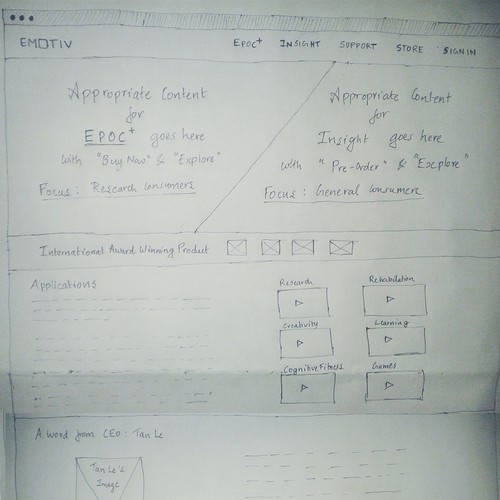 EMOTIV
EPOC+ INSIGHT SUPPORT STORE SIGN IN
Appropriate Content
for
EPOC+ goes here
with "Buy Now" & "Explore"
Focus: Research Consumers
Appropriate Content
for
Insight goes here
with "Pre-Order" & "Explore"
Focus: General Consumers
International Award Winning Product
Applications
Research
Rehabilitation
Creativity
Learning
Cognitive Fitness
Games
A word from CEO: Tan Le
Tan Le's
Image